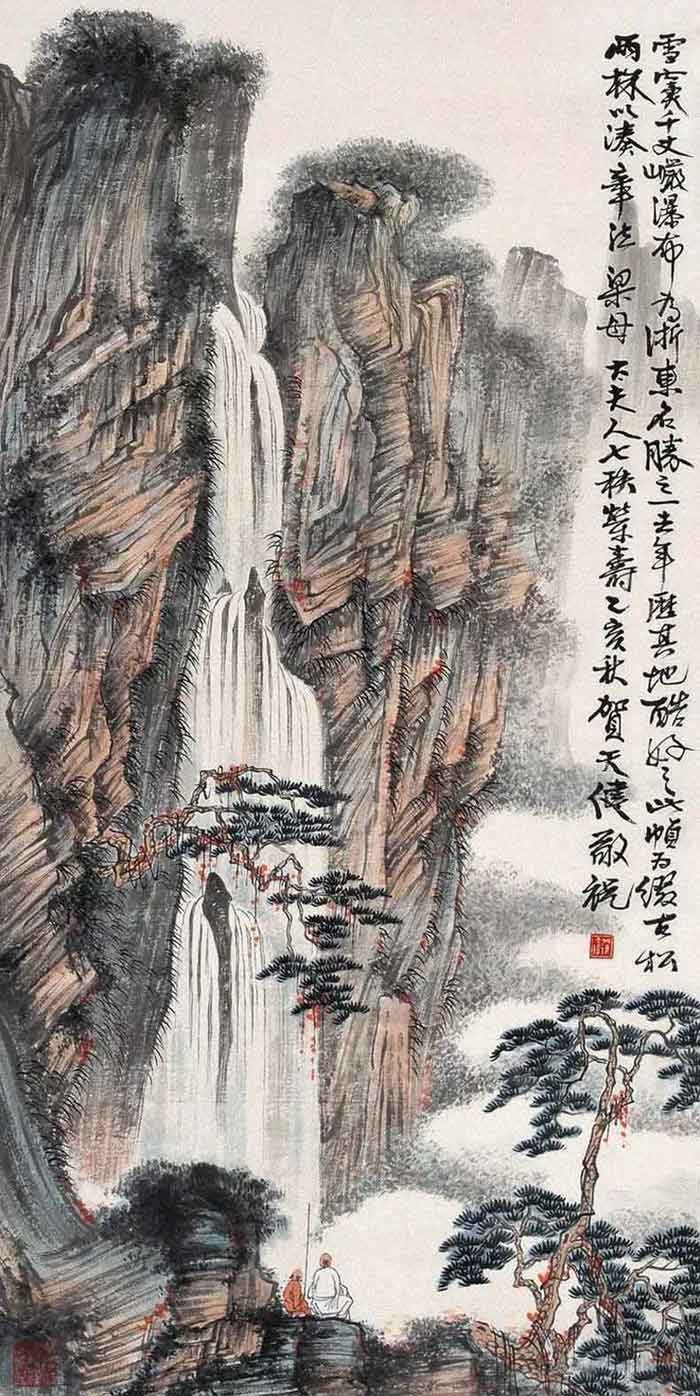 雪窦千丈巖瀑布为浙東名勝之一去年匯其地酷好之此幀为缀古松
兩株以湊章法 梁母太夫人七秩榮壽乙亥秋賀天健敬祝